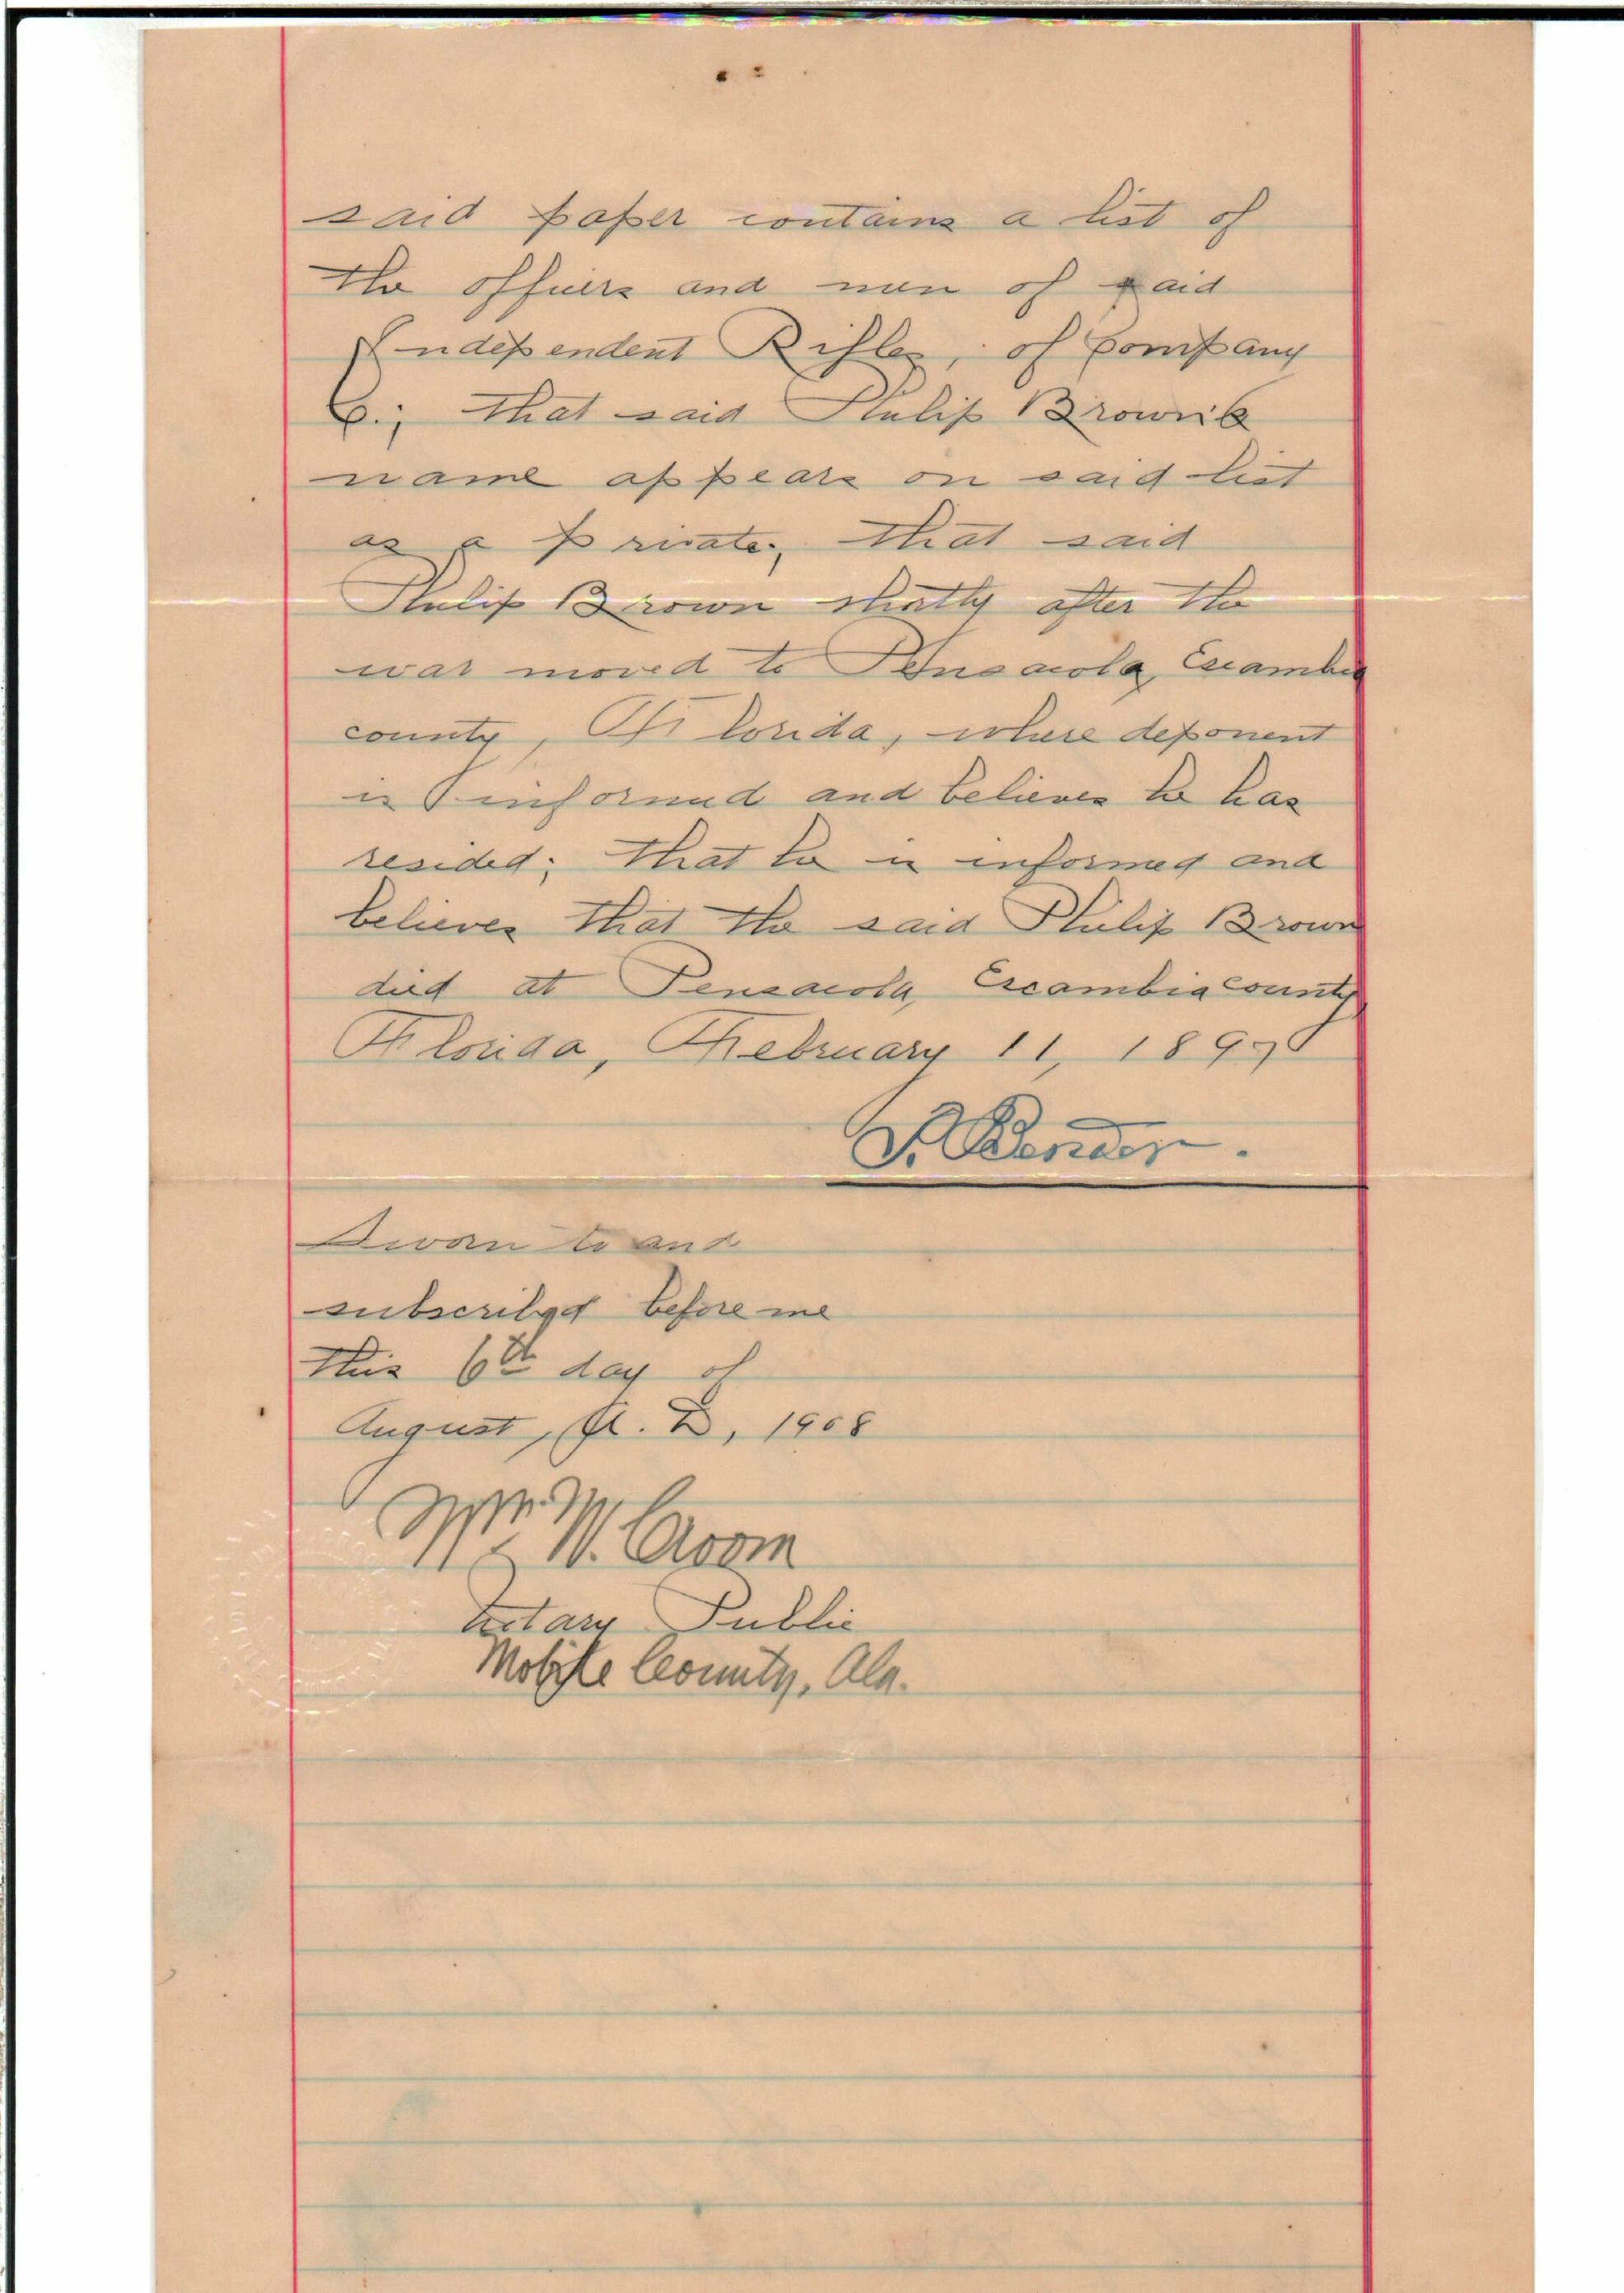 said paper contains a list of
the officers and men of said
Independent Rifles, of Company
C.; that said Philip Brown's
name appears on said list
as a private; that said
Philip Brown shortly after the
war moved to Pensacola, Escambia
county, Florida, where deponent
is informed and believes he has
resided; that he is informed and
believes that the said Philip Brown
died at Pensacola, Escambia County
Florida, February 11, 189
Sworn to and
subscribed before me
this 6th day of
August, A. D, 1908
Wm. W. Croom
Notary Public
Mobile County, Ala.